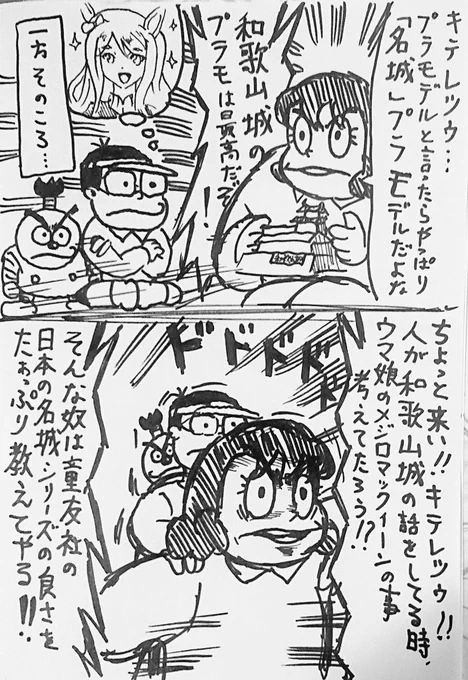 キテレツゥ…
プラモデルと言ったらやっぱり
「名城」プラモデルだよな
和歌山城の
プラモは最高だぞ!
一方そのころ…
ちょっと来い!!キテレツゥ!!
人が和歌山城の話をしてる時、
ウマ娘のメジロマックイーンの事
考えてたろう!?
ドドドドド
そんな奴は童友社の
日本の名城シリーズの良さを
たぁっぷり教えてやる!!